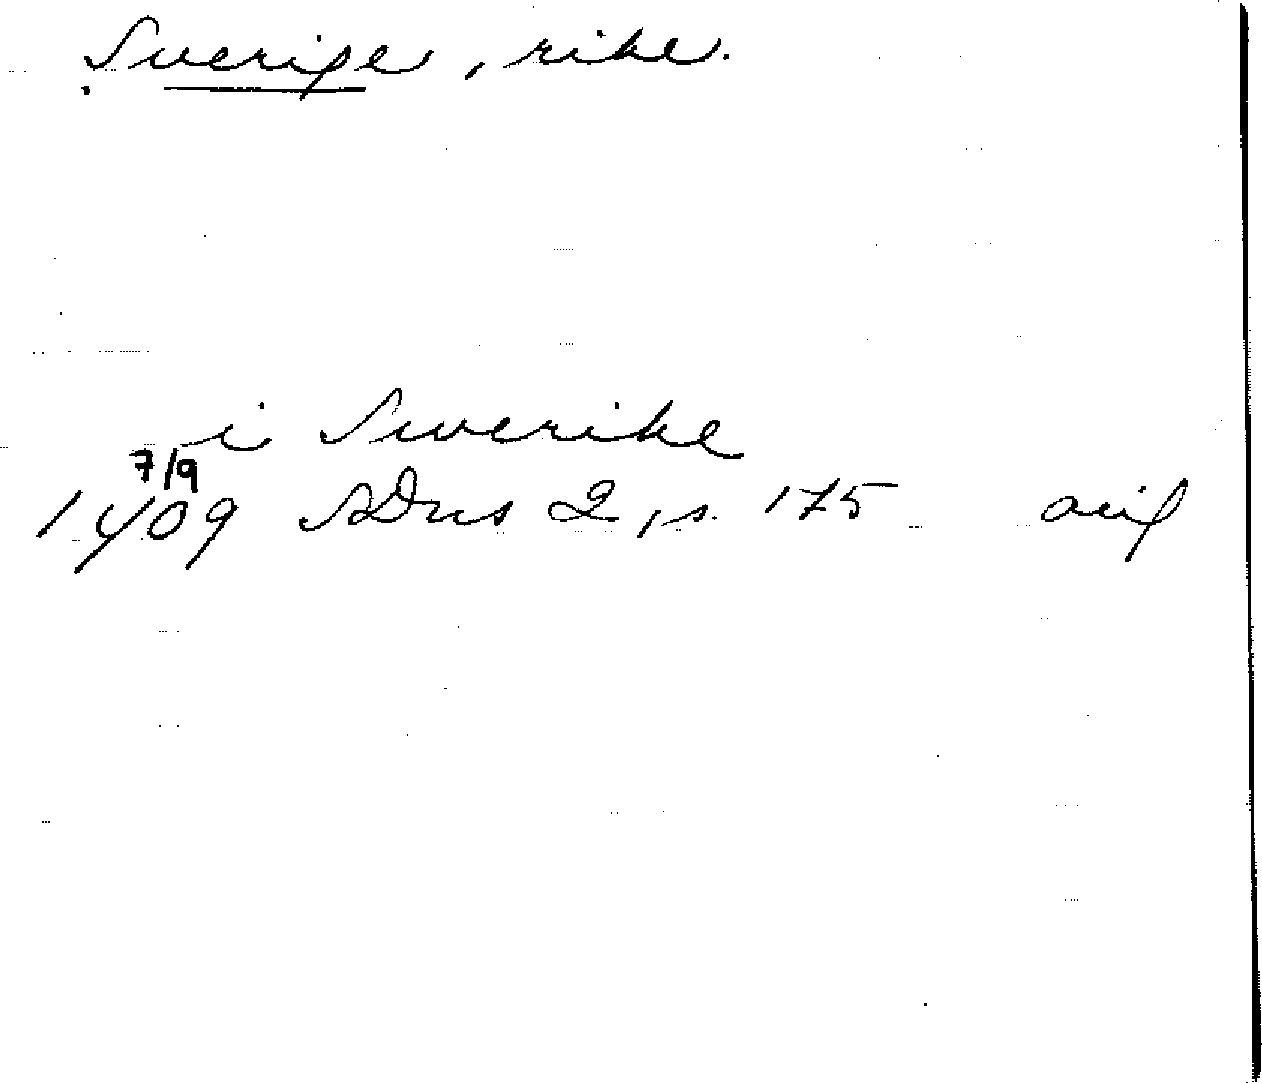 Sverige, rike.
i Swerike
7/9
1409 SDns 2, s. 175 avig